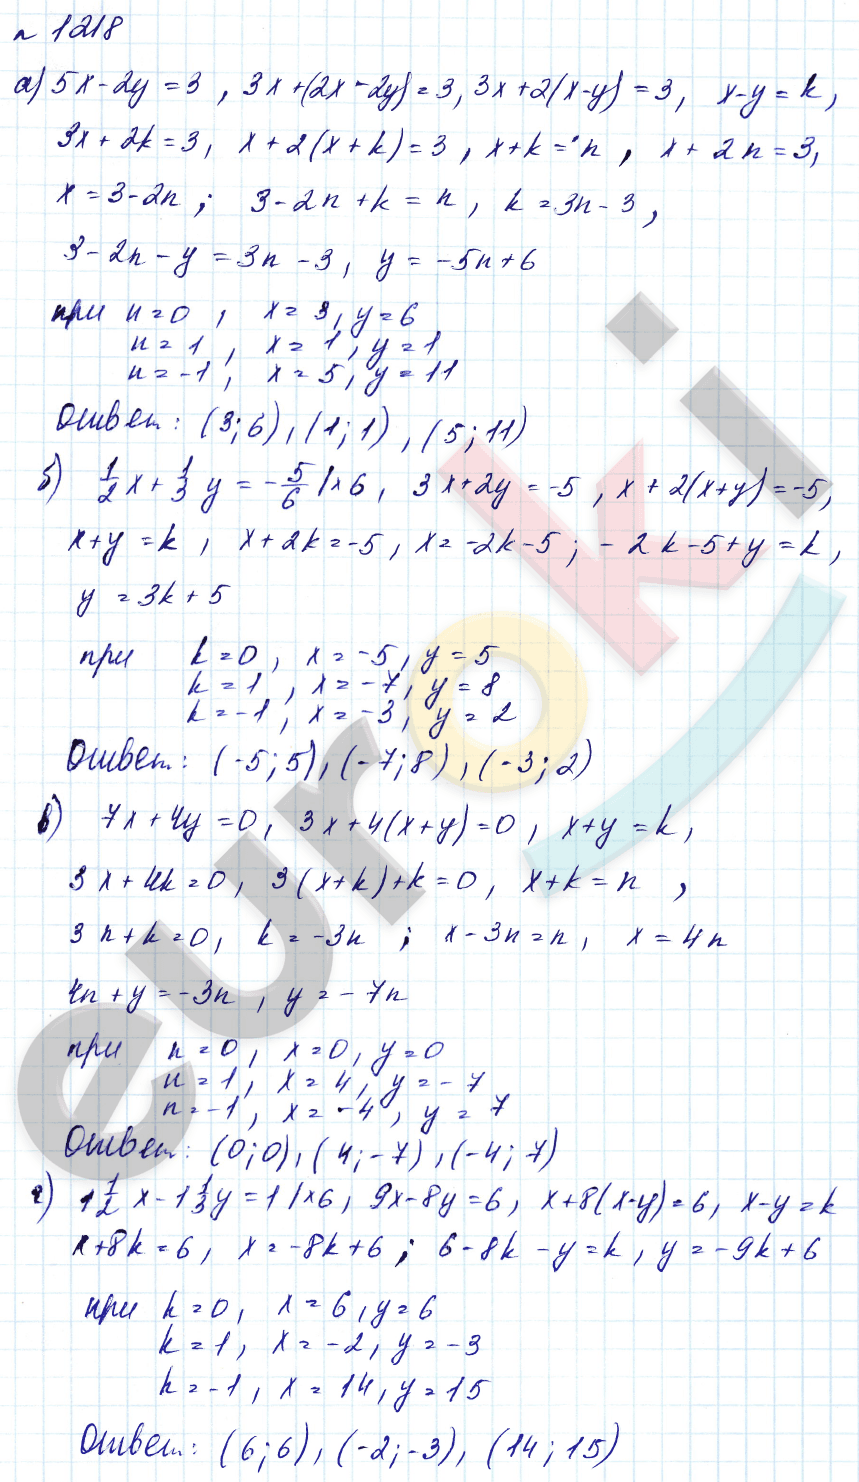 № 1218
а) 5x - 2y = 3, 3x + (2x - 2y) = 3, 3x + 2(x-y) = 3, x - y = k,
3x + 2k = 3, x + 2(x + k) = 3, x + k = n, x + 2n = 3,
x = 3 - 2n; 3 - 2n + k = n, k = 3n - 3,
3 - 2n - y = 3n - 3, y = -5n + 6
при n = 0, x = 3, y = 6
n = 1, x = 1, y = 1
n = -1, x = 5, y = 11
Ответ: (3; 6), (1; 1), (5; 11)
б) 1/2 x + 1/3 y = -5/6 | ×6, 3x + 2y = -5, x + 2(x+y) = -5,
x + y = k, x + 2k = -5, x = -2k - 5; -2k - 5 + y = k,
y = 3k + 5
при k = 0, x = -5, y = 5
k = 1, x = -7, y = 8
k = -1, x = -3, y = 2
Ответ: (-5; 5), (-7; 8), (-3; 2)
в) 7x + 4y = 0, 3x + 4(x+y) = 0, x + y = k,
3x + 4k = 0, 3(x + k) + k = 0, x + k = n,
3n + k = 0, k = -3n; x - 3n = n, x = 4n
4n + y = -3n, y = -7n
при n = 0, x = 0, y = 0
n = 1, x = 4, y = -7
n = -1, x = -4, y = 7
Ответ: (0; 0), (4; -7), (-4; 7)
г) 1 1/2 x - 1 1/3 y = 1 | ×6, 9x - 8y = 6, x + 8(x-y) = 6, x - y = k
x + 8k = 6, x = -8k + 6; 6 - 8k - y = k, y = -9k + 6
при k = 0, x = 6, y = 6
k = 1, x = -2, y = -3
k = -1, x = 14, y = 15
Ответ: (6; 6), (-2; -3), (14; 15)
euroki